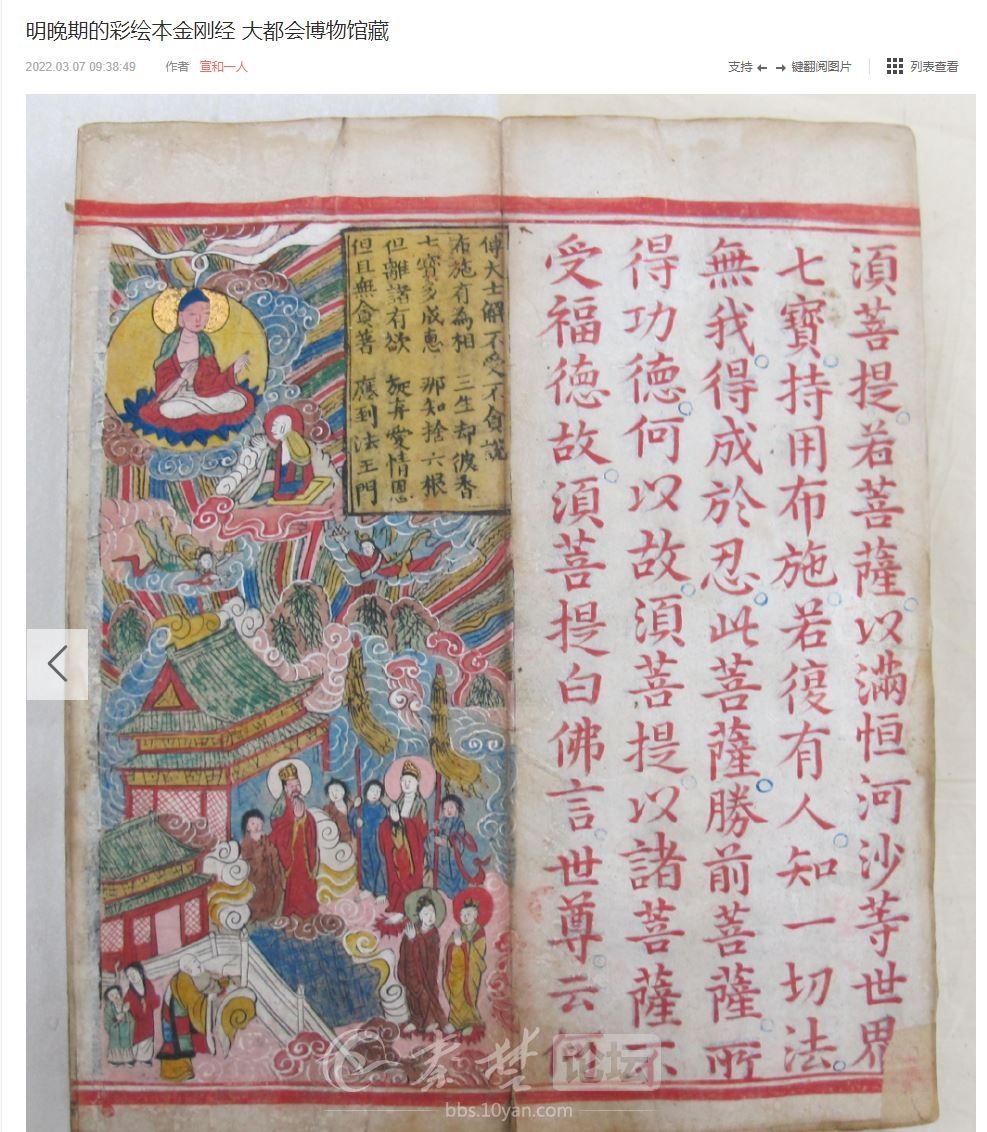 明晚期的彩绘本金刚经 大都会博物馆藏
2022.03.07 09:38:49 作者 宣和一人 支持 ← → 键翻阅图片 列表查看
須菩提若菩薩以滿恒河沙等世界
七寶持用布施若復有人知一切法
無我得成於忍此菩薩勝前菩薩所
得功德何以故須菩提以諸菩薩不
受福德故須菩提白佛言世尊云
傅大士解不受不貪說
布施有為相 三生却被吞
七寶多成恵 那知捨六根
但離諸有欲 旋弃愛情恩
但且無貪著 應到法王門
秦楚论坛
bbs.10yan.com